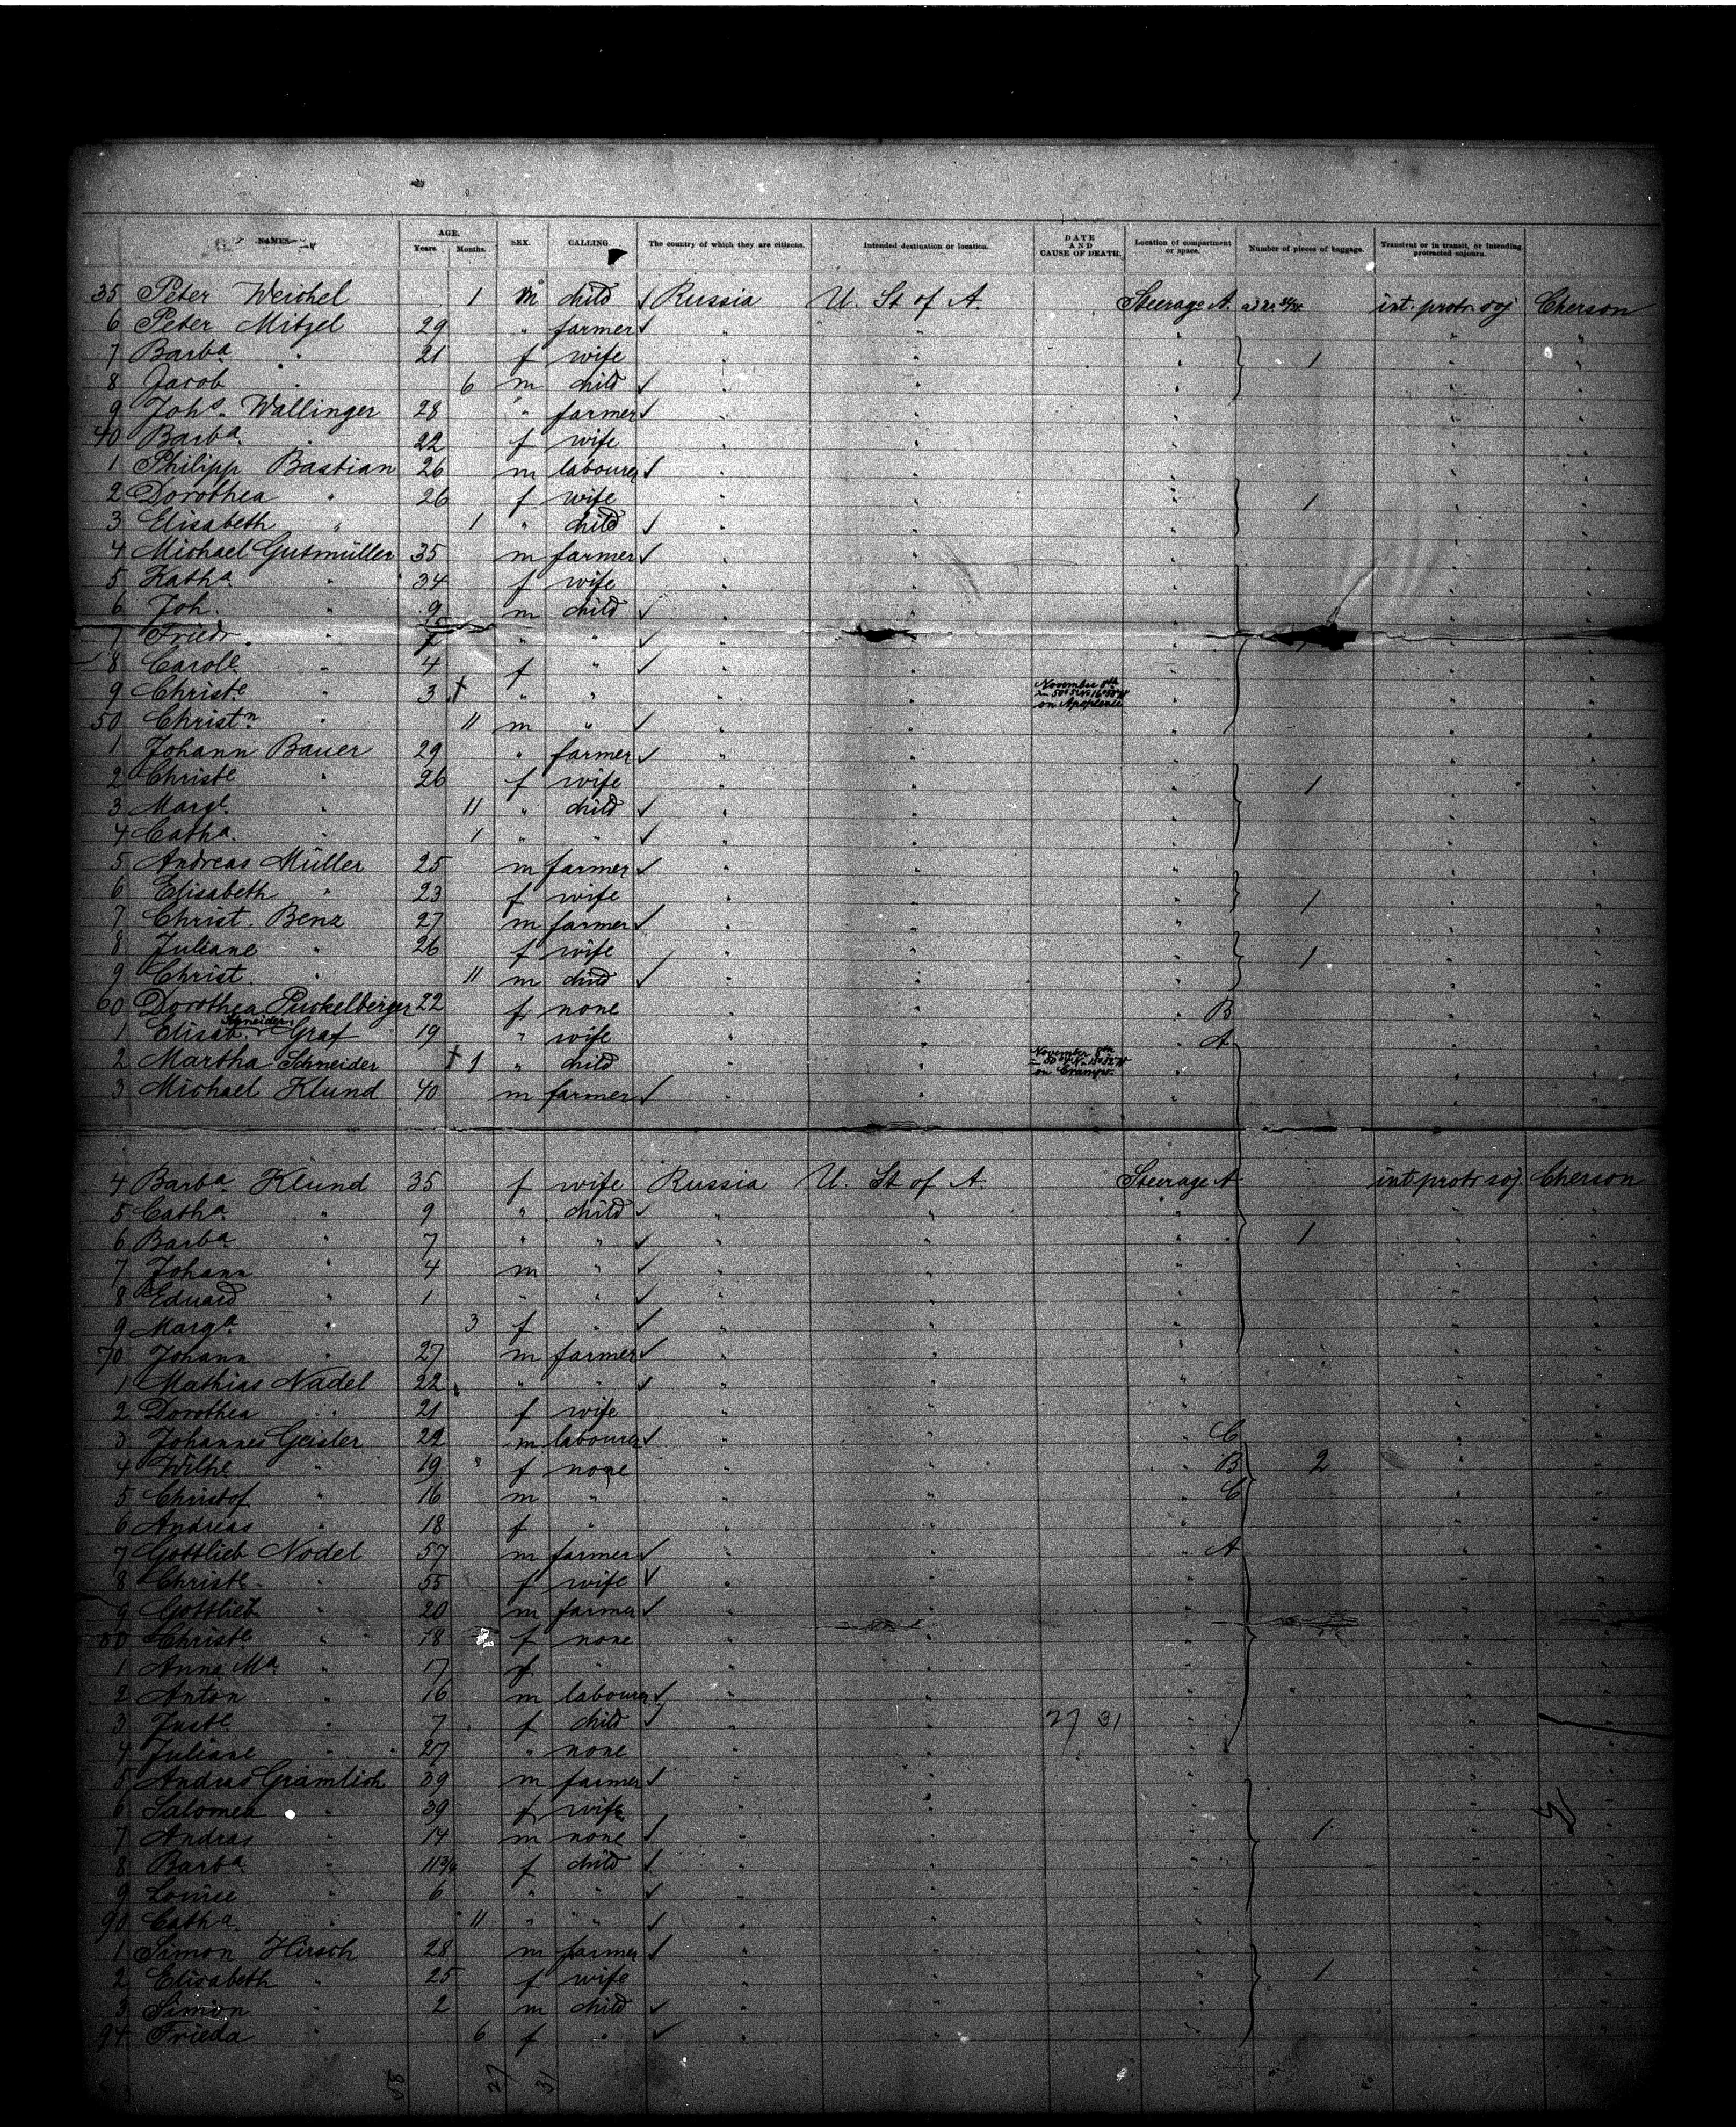 NAMES. AGE. Years. Months. SEX. CALLING. The country of which they are citizens. Intended destination or location. DATE AND CAUSE OF DEATH. Location of compartment or space. Number of pieces of baggage. Transient or in transit, or intending protracted sojourn.
35 Peter Weichel 1 m child ✓ Russia U. St of A. Steerage A. int. protr. soj Cherson
6 Peter Mitzel 29 " farmer ✓ " " " " "
7 Barba " 21 f wife " " " 1 " "
8 Jacob " 6 m child ✓ " " " " "
9 Johs. Wallinger 28 " farmer ✓ " " " " "
40 Barba. " 22 f wife " " " " "
1 Philipp Bastian 26 m labourer ✓ " " " " "
2 Dorothea " 26 f wife " " " 1 " "
3 Elisabeth " 1 " child ✓ " " " " "
4 Michael Gutmüller 35 m farmer ✓ " " " " "
5 Katha. " 34 f wife " " " " "
6 Joh. " 9 m child ✓ " " " " "
7 Friedr. " " " ✓ " " " " "
8 Carole " 4 f " ✓ " " " " "
9 Christe " 3 † " " " " November 8th on Apoplexie " " "
50 Christn " 11 m " ✓ " " " " "
1 Johann Bauer 29 " farmer ✓ " " " " "
2 Christe " 26 f wife " " " 1 " "
3 Marge. " 11 " child ✓ " " " " "
4 Catha. " 1 " " ✓ " " " " "
5 Andreas Müller 25 m farmer ✓ " " " " "
6 Elisabeth " 23 f wife " " " 1 " "
7 Christ. Benz 27 m farmer ✓ " " " " "
8 Juliane " 26 f wife " " " 1 " "
9 Christ. " 11 m child ✓ " " " " "
60 Dorothea 22 f none " " " B " "
1 Elisab. Schneider Graf 19 " wife " " " A " "
2 Martha Schneider † 1 " child " " November 8th on Cramps. " " "
3 Michael Klund 40 m farmer ✓ " " " " "
4 Barba Klund 35 f wife Russia U. St of A. Steerage A int protr soj Cherson
5 Catha. " 9 " child ✓ " " " " "
6 Barba " 7 " " ✓ " " " 1 " "
7 Johann " 4 m " ✓ " " " " "
8 Eduard " 1 " " ✓ " " " " "
9 Marga. " 3 f " ✓ " " " " "
70 Johann " 27 m farmer ✓ " " " " "
1 Mathias Nadel 22 " " ✓ " " " " "
2 Dorothea " 21 f wife " " " " "
3 Johannes Geisler 22 m labourer ✓ " " " C " "
4 Wilhe " 19 f none " " " B 2 " "
5 Christof. " 16 m " " " " C " "
6 Andreas " 18 f " " " " " "
7 Gottlieb Nodel 57 m farmer ✓ " " " A " "
8 Christe. " 55 f wife ✓ " " " " "
9 Gottlieb " 20 m farmer ✓ " " " " "
80 Christe " 18 f none " " " " "
1 Anna Ma. " 17 f " " " " " "
2 Anton " 16 m labourer ✓ " " " " "
3 Juste " 7 f child ✓ " " 27 31 " " "
4 Juliane " 27 " none " " " " "
5 Andras Gramlich 39 m farmer ✓ " " " " "
6 Salomea " 39 f wife " " " " "
7 Andras " 14 m none ✓ " " " 1 " "
8 Barba. " f child ✓ " " " " "
9 Louise " 6 " " ✓ " " " " "
90 Catha. " 11 " " ✓ " " " " "
1 Simon Hirsch 28 m farmer ✓ " " " " "
2 Elisabeth " 25 f wife " " " 1 " "
3 Simon " 2 m child ✓ " " " " "
94 Frieda " 6 f " ✓ " " " " "
58 27 31